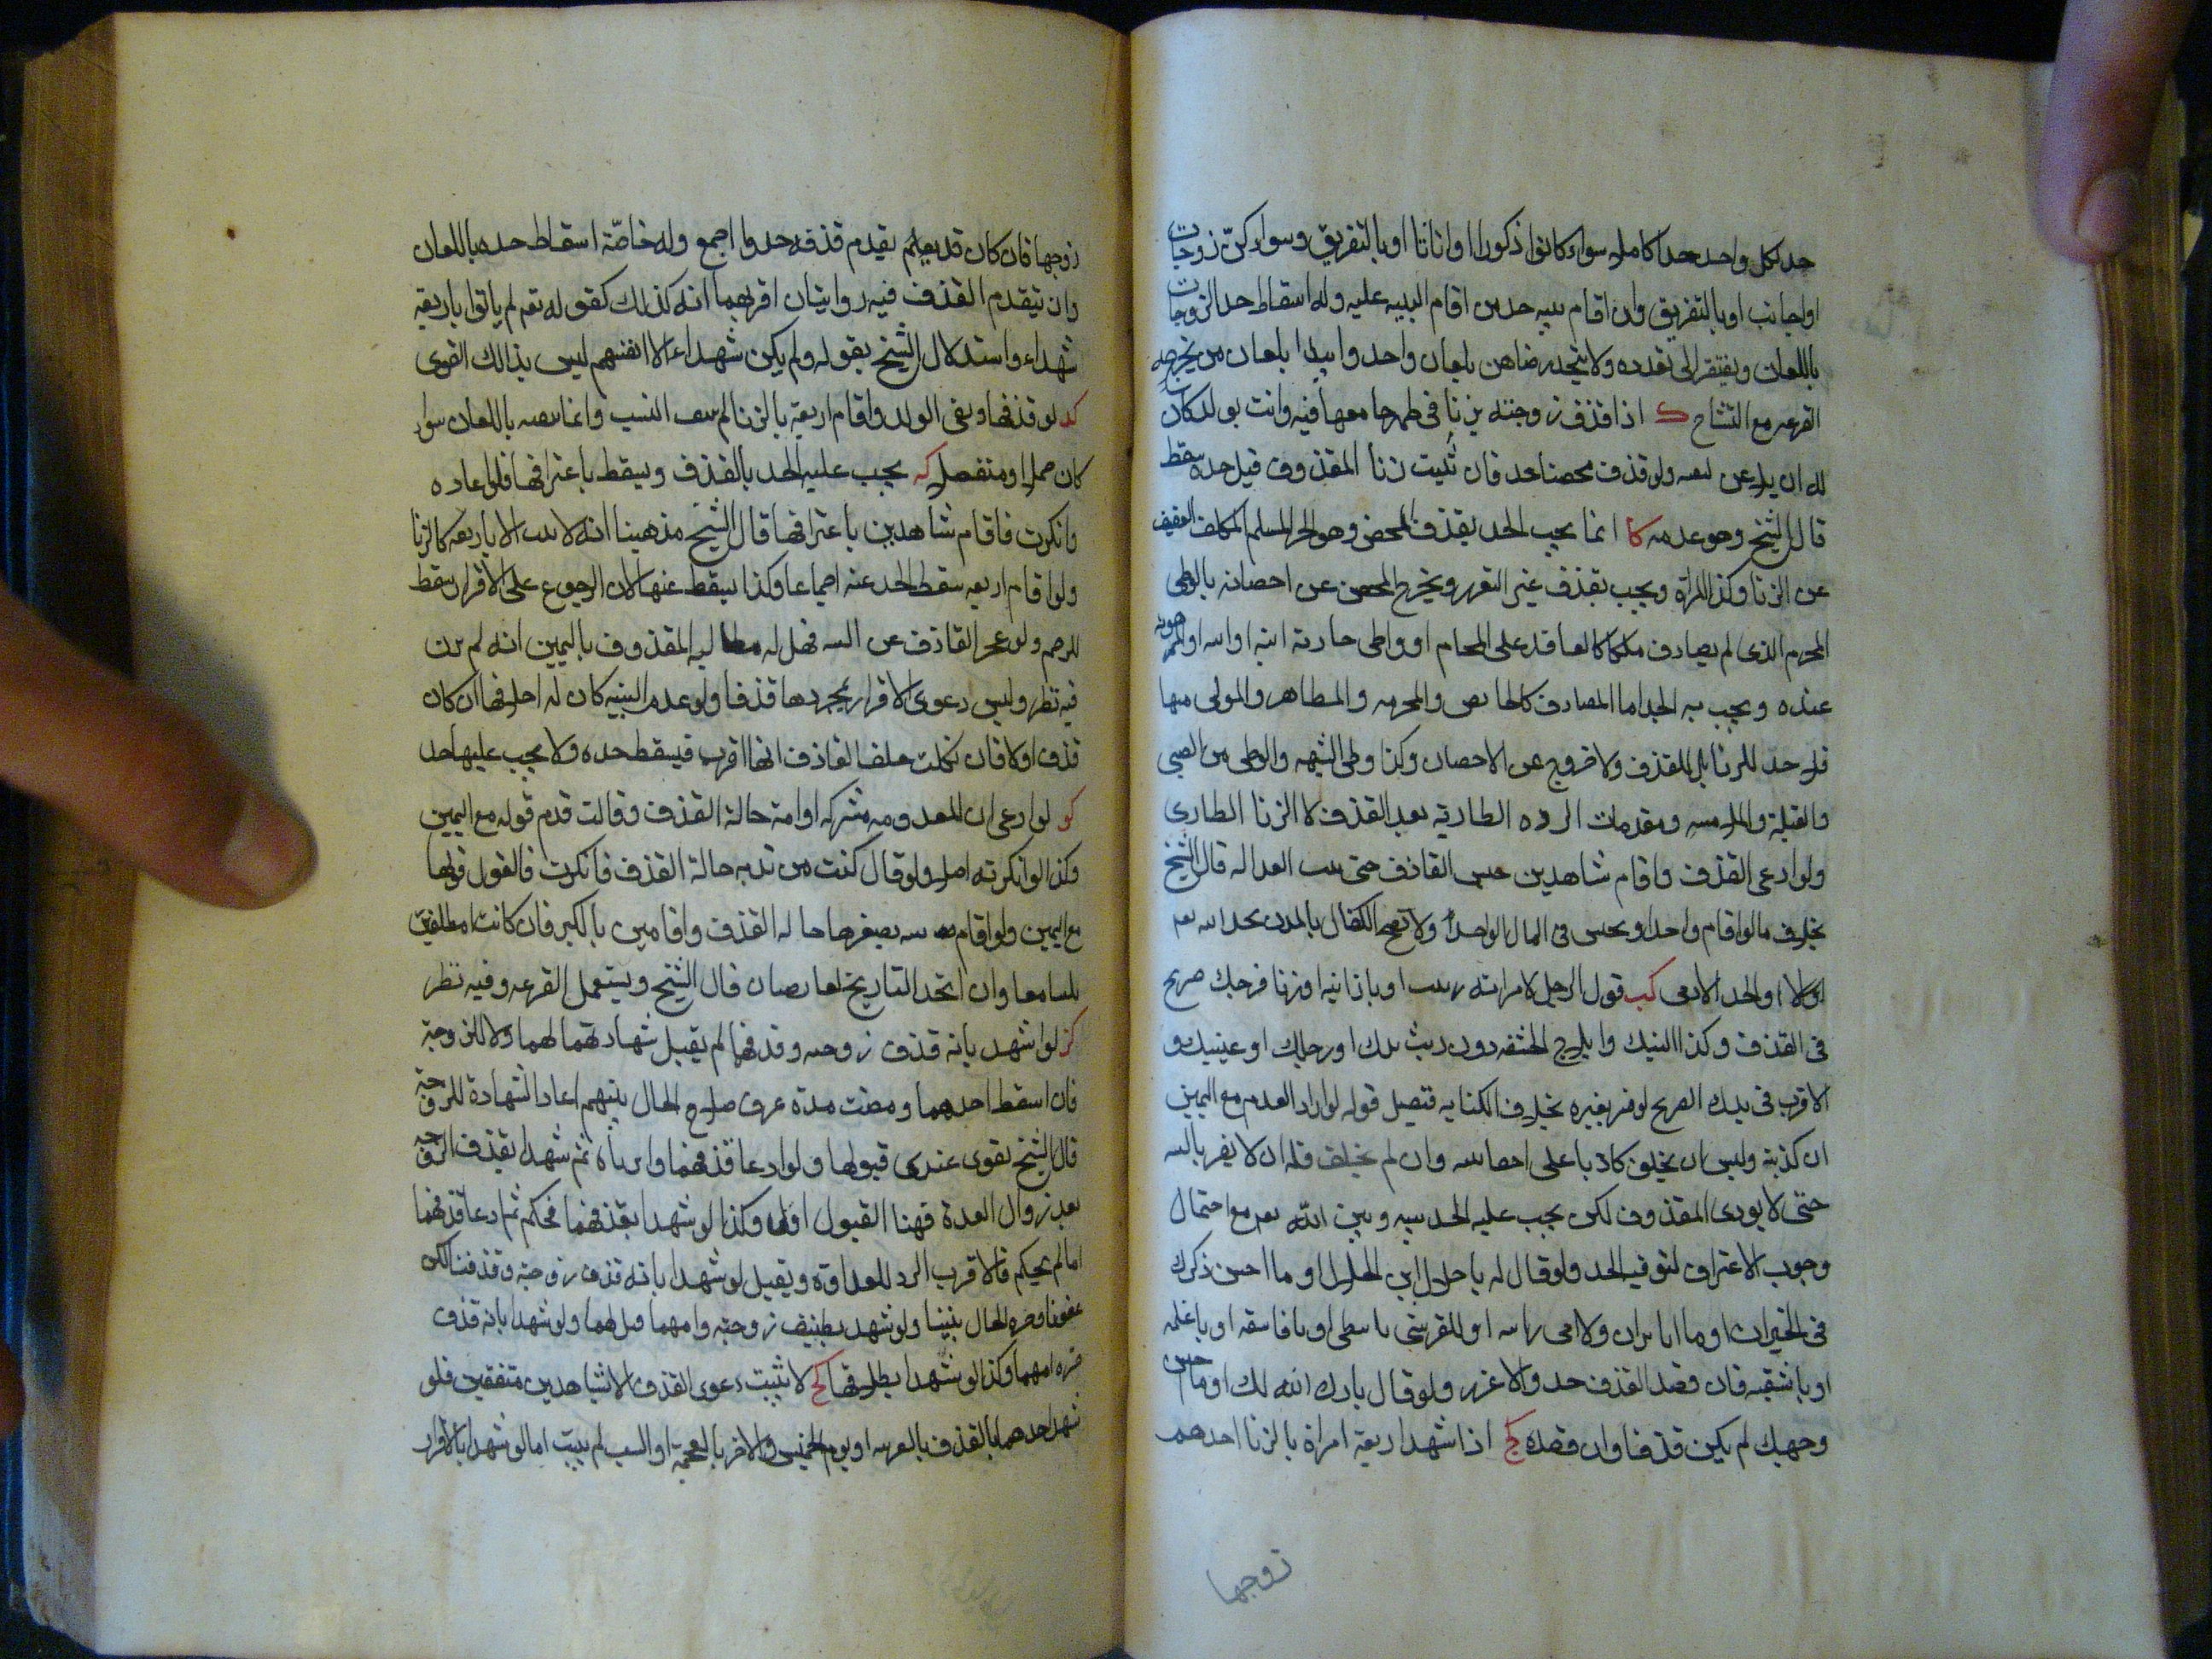 حد لكل واحد حدا كاملا سواء كانوا ذكورا او اناثا او بالتفريق وسواء كن زوجات
او اجانب او بالتفريق وان اقام بينه حد من اقام البينه عليه وله اسقاط حد الزوجات
باللعان ويفتقر الى تعدده ولا يتحد برضاهن بلعان واحد وا يبدا بلعان من تخرجه
القرعه مع التشاح ك اذا قذف زوجته بزنا في طهر جامعها فيه وانت بولد كان
له ان يلاعن لنفيه ولو قذف محصنا حد فان ثبت زنا المقذوف قبل حده سقط
قال الشيخ وعدمه كا انما يجب الحد بقذف المحصن وهو الحر المسلم المكلف العفيف
عن الزنا وكذا المراة ويجب بقذف غير التعزير ويخرج المحصن عن احصانه بالوطي
المحرم الذي لم يصادف ملكا كالعاقد على المحارم او واطي جارية ابنه او ابيه او المرهونه
عنده ويجب به الحد اما المصادف كالحايض والمحرمه والمظاهر والمولى منها
فلا حد للزنا بل للقذف ولا خروج عن الاحصان وكذا وطي الشبهه والوطي من الصبي
والقبلة والملامسه ومقدمات الرده الطاريه بعد القذف لا الزنا الطاري
ولو ادعى القذف واقام شاهدين حبس القاذف حتى يثبت العداله قال الشيخ
بخلاف ما لو اقام واحدا ويحبس في المال الواحد ولا تصح الكفال بالبدن بحد الله تعم
اولا او الحد الادمي كب قول الرجل لامراته زنيت او يا زانيه او زنا فرجك صريح
في القذف وكذا النيك وايلاج الحشفه دون زنت يدك او رجلك او عينيك و
الاقرب في بدنك الصريح لو فسر بغيره بخلاف الكنايه فتصل قوله لو اراد العدم مع اليمين
ان كذبته وليس ان يحلف كاذبا على احصانه وان لم يحلف فله ان لا يقر بالنيه
حتى لا يوذي المقذوف لكن يجب عليه الحد بينه وبين الله تعم مع احتمال
وجوب الاعتراف لتوفيه الحد ولو قال له يا حلال ابن الحلال او ما احسن ذكرك
في الجيران او ما انا بزان ولا امي زانيه او للقرشي يا نبطي او يا فاسقه او يا غلمه
او يا شبقه فان قصد القذف حد والا عزر ولو قال بارك الله لك او ما احسن
وجهك لم يكن قذفا وان قصده كج اذا شهد اربعة امراة بالزنا احدهم
زوجها
زوجها فان كان قد بعلم يقدم قذفه حدوا اجمع وله خاصة اسقاط حده باللعان
وان يتقدم القذف فيه روايتان اقربهما انه كذلك كقوله تعم لم ياتوا باربعة
شهداء واستدلال الشيخ بقوله ولم يكن شهداء الا انفسهم ليس بذالك القوي
كد لو قذفها ونفى الولد واقام اربعة بالزنا لم ينتف النسب وانما ينفيه باللعان سواء
كان حملا او منفصلا كه يجب عليه الحد بالقذف ويسقط باعترافها فلو اعاده
وانكرت فاقام شاهدين باعترافها قال الشيخ مذهبنا انه لا يثبت الا باربعه كالزنا
ولو اقام اربعه سقط الحد عنه اجماعا وكذا يسقط عنها لان الرجوع على الاقرار سقط
للرجم ولو عجز القاذف عن البينه فهل له مطالبه المقذوف باليمين انه لم يزن
فيه نظر وليس دعوى الاقرار بمجردها قذفا ولو عدم البينه كان له احلافها ان كان
قذف اولا فان نكلت حلف القاذف انها اقرت فيسقط حده ولا يجب عليها حد
كو لو ادعى ان المقذوفه مشركه او امة حالة القذف وقالت قدم قوله مع اليمين
وكذا لو انكرته اصلا ولو قال كنت مرتده حالة القذف فانكرت فالقول قولها
مع اليمين ولو اقام بينه بصغرها حاله القذف واقامت بالكبر فان كانتا مطلقتين
سمعا معا وان اتحد التاريخ تعارضتا قال الشيخ ويستعمل القرعه وفيه نظر
كز لو شهد بانه قذف زوجته وقذفهما لم يقبل شهادتهما لهما ولا للزوجة
فان اسقط احدهما ومضت مدة عرف صلاح الحال بينهم اعاد الشهادة للزوجة
قال الشيخ يقوى عندي قبولها ولو ادعا قذفهما وابرياه ثم شهدا بقذف الزوجه
بعد زوال العدة فهنا القبول اولى وكذا لو شهدا بقذفهما فحكم ثم ادعا قذفهما
اما لم يحكم فالاقرب الرد للعداوة ويقبل لو شهدا بانه قذف زوجته وقذفنا لكن
عفونا وصح الحال بيننا ولو شهد بطلاق زوجته وامهما قبل لهما ولو شهدا بانه قذف
ضره امهما وكذا لو شهدا بطلاقها كح لا تثبت دعوى القذف الا بشاهدين متفقين فلو
شهد احدهما بالقذف بالعربيه او يوم الخميس والاخر بالعجمية او السبت لم يثبت اما لو شهدا بالاقرار